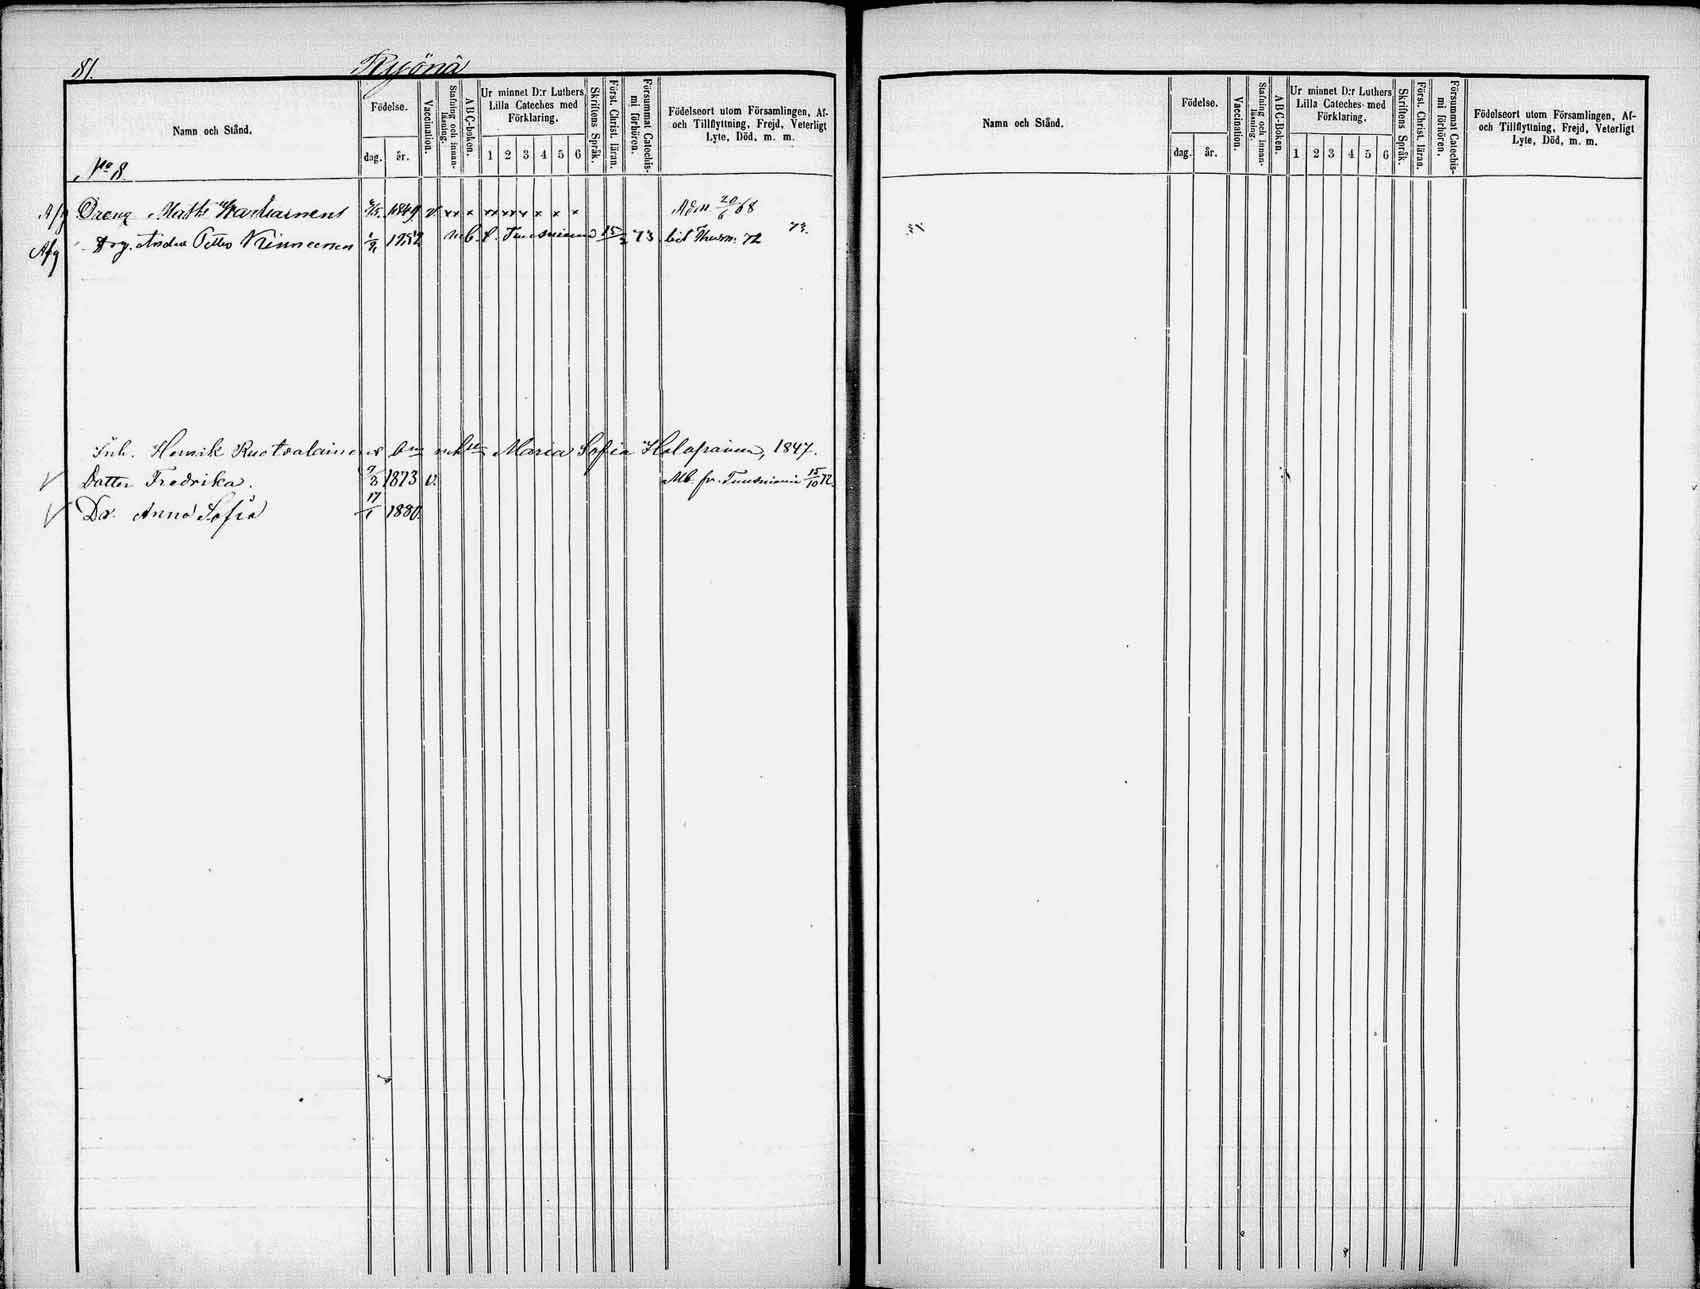 81.
Ryönä
Namn och Stånd.
Födelse.
dag. år.
Vaccination.
Stafning och innanläsning.
ABC-boken.
Ur minnet D:r Luthers
Lilla Cateches med
Förklaring.
1 2 3 4 5 6
Skriftens Språk.
Först. Christ. läran.
Försummat Catechismi förhören.
Födelseort utom Församlingen, Af-
och Tillflyttning, Frejd, Veterligt
Lyte, Död, m. m.
No 8.
Afg Dreng Matts 1849 v xx x xx xx x x x x Adm 20/6 68
Afg Drg. Anders Petter Kinnunen 1852 n b. t. Tuusniemi 15/2 73 bet 72 73.
Inh. Henrik Ruotsalainens o Maria Sofia Holopainen, 1847.
Dotter Fredrika. 7/3 1873 v. Mb. fr. Tuusniemi 15/10 72.
Dr. Anna Sofia 17/1 1880.
Namn och Stånd.
Födelse.
dag. år.
Vaccination.
Stafning och innanläsning.
ABC-Boken.
Ur minnet D:r Luthers
Lilla Cateches med
Förklaring.
1 2 3 4 5 6
Skriftens Språk.
Först. Christ. läran.
Försummat Catechismi förhören.
Födelseort utom Församlingen, Af-
och Tillflyttning, Frejd, Veterligt
Lyte, Död, m. m.